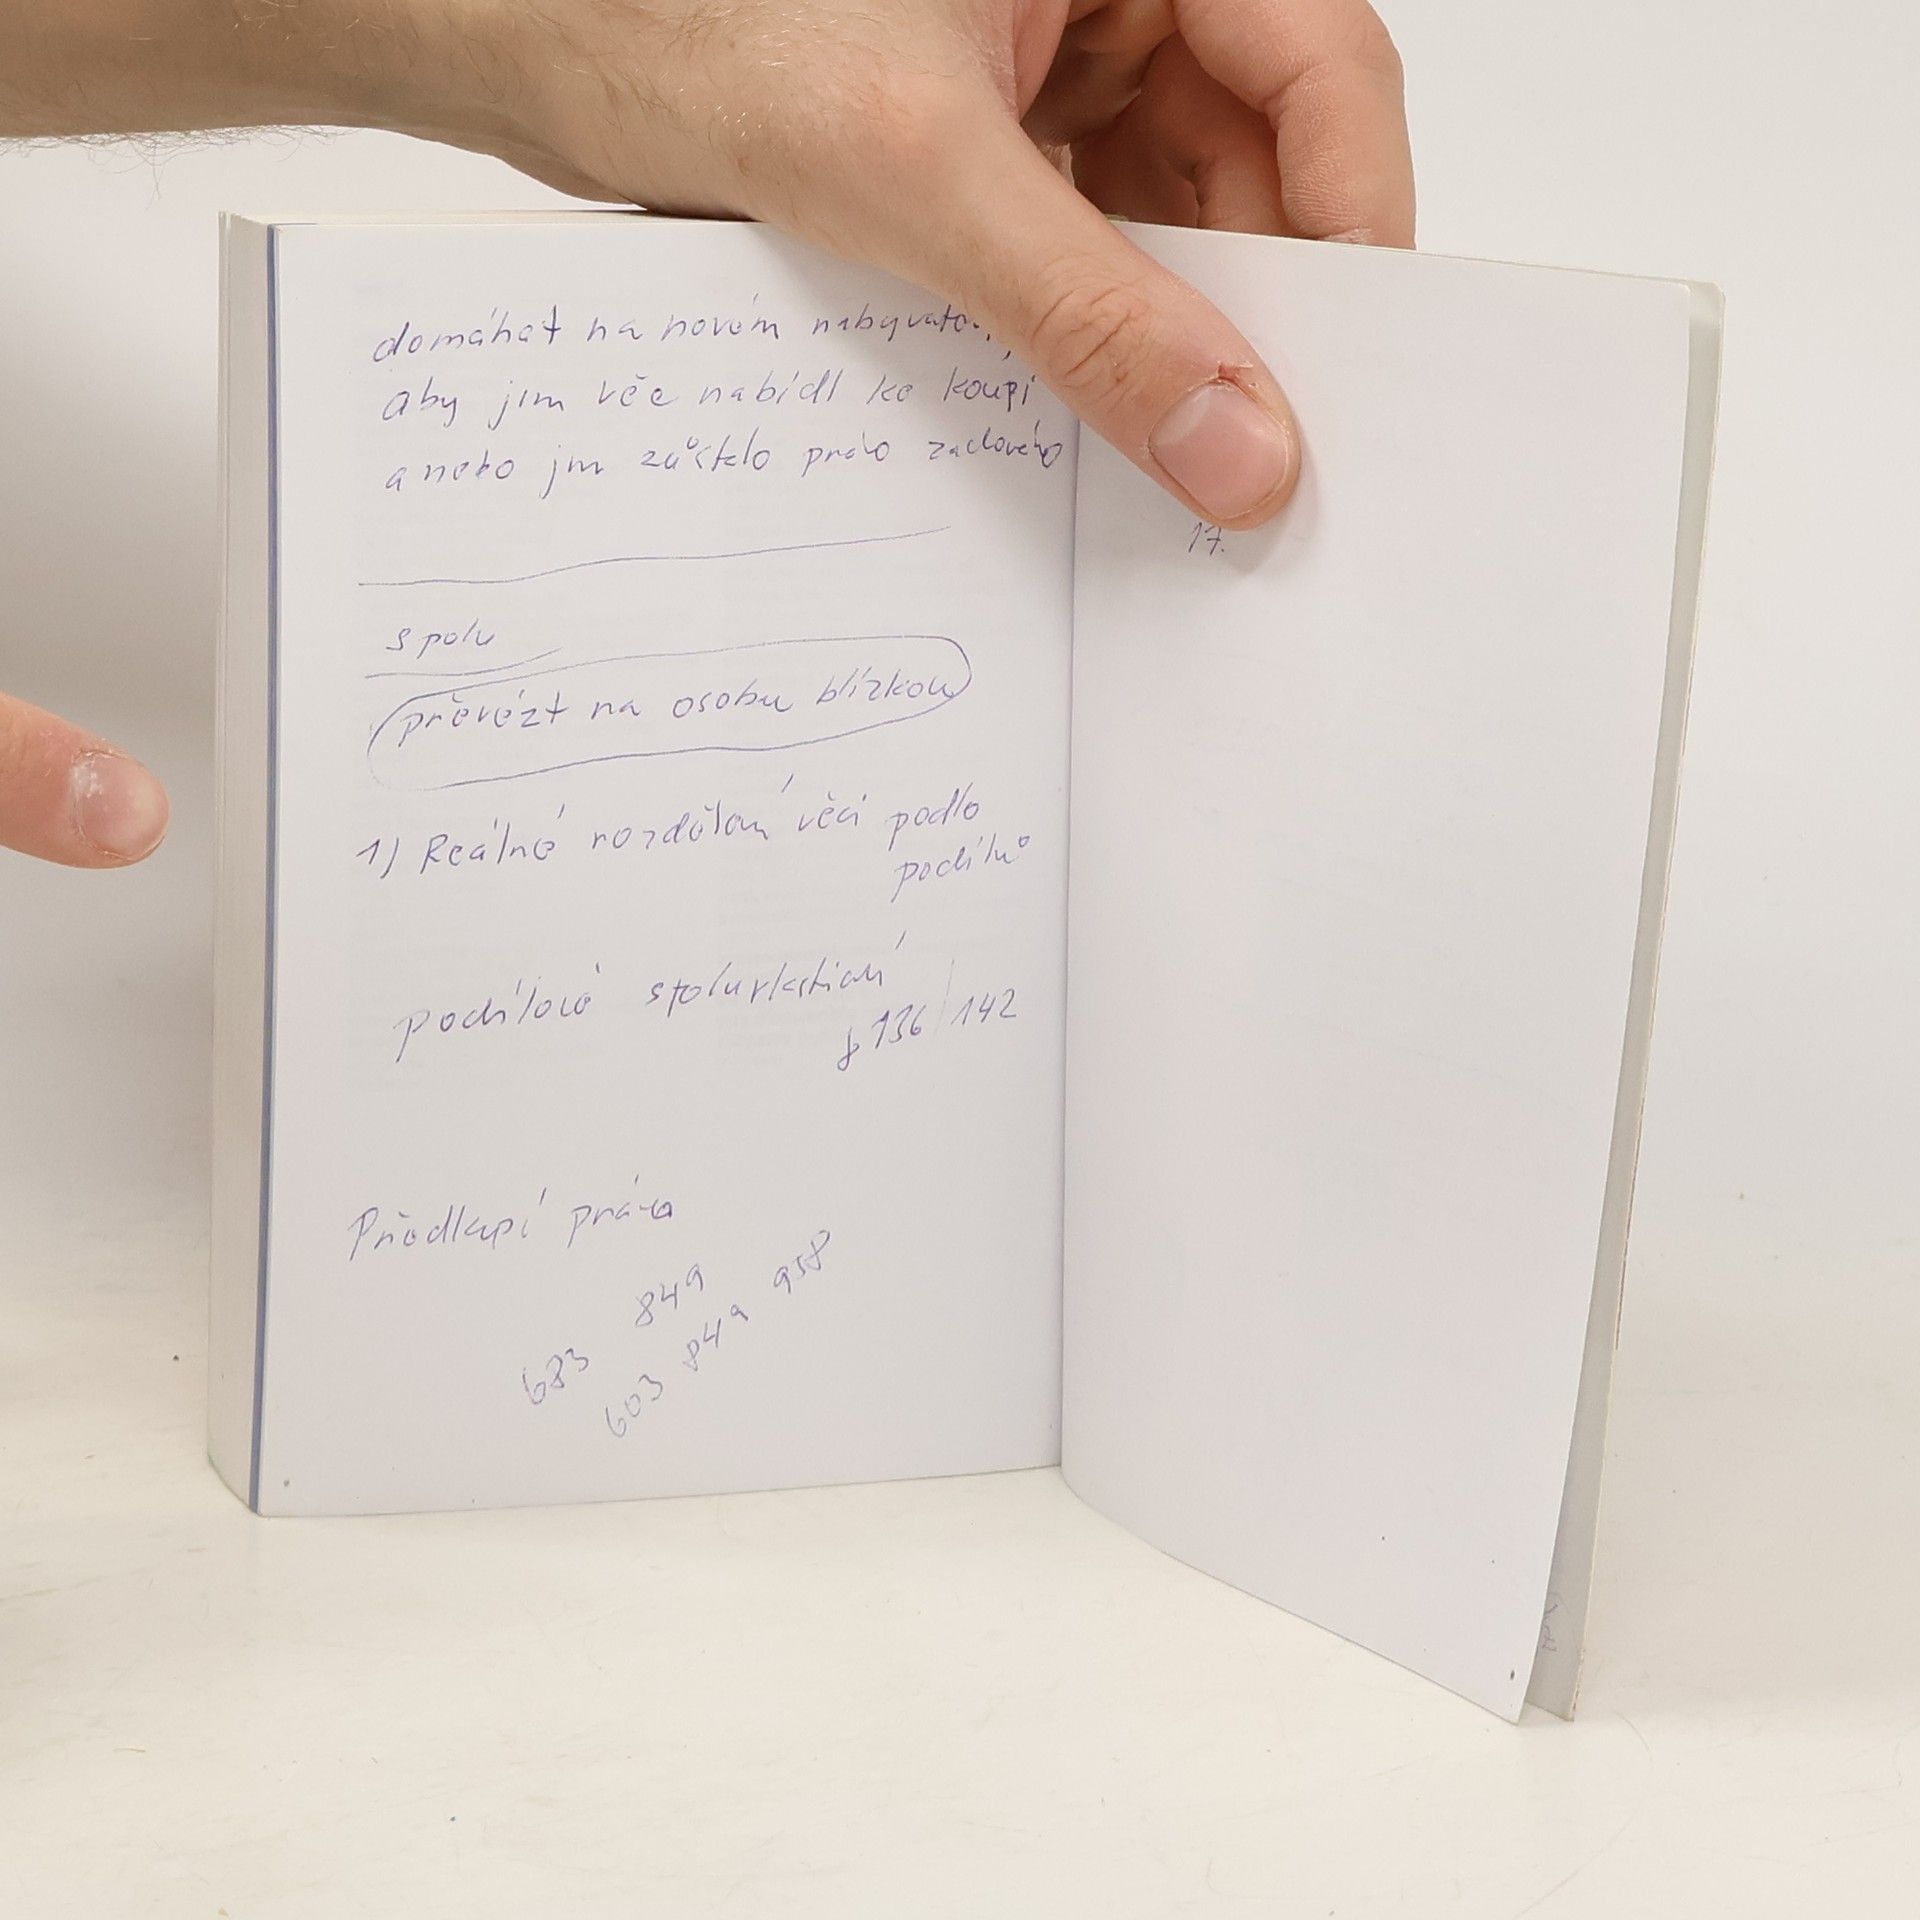 domáhat na novém nabyvato
aby jim věc nabídl ke koupi
a nebo jim zůstalo právo zaclového
17.
spolu
převézt na osobu blízkou
1) Reálné rozdělení věci podle
podílů
podílové spoluvlastnictví
§ 136/142
Předkupí práva
849 958
683
603 849